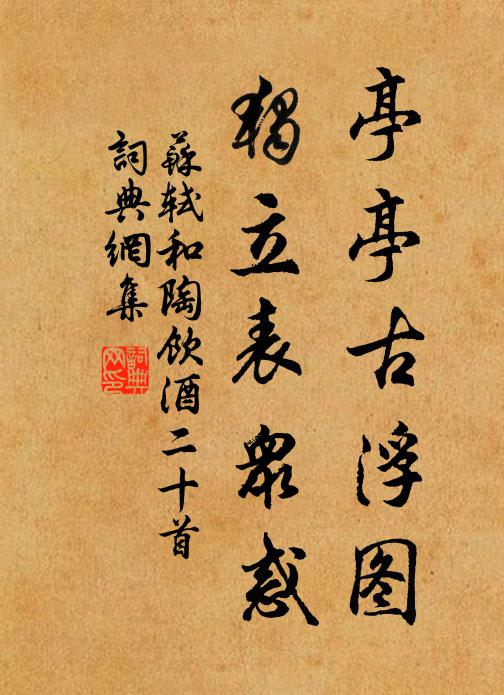 亭亭古浮图
獨立表眾惑
蘇軾和陶飲酒二十首
詞典網集
詞典网印